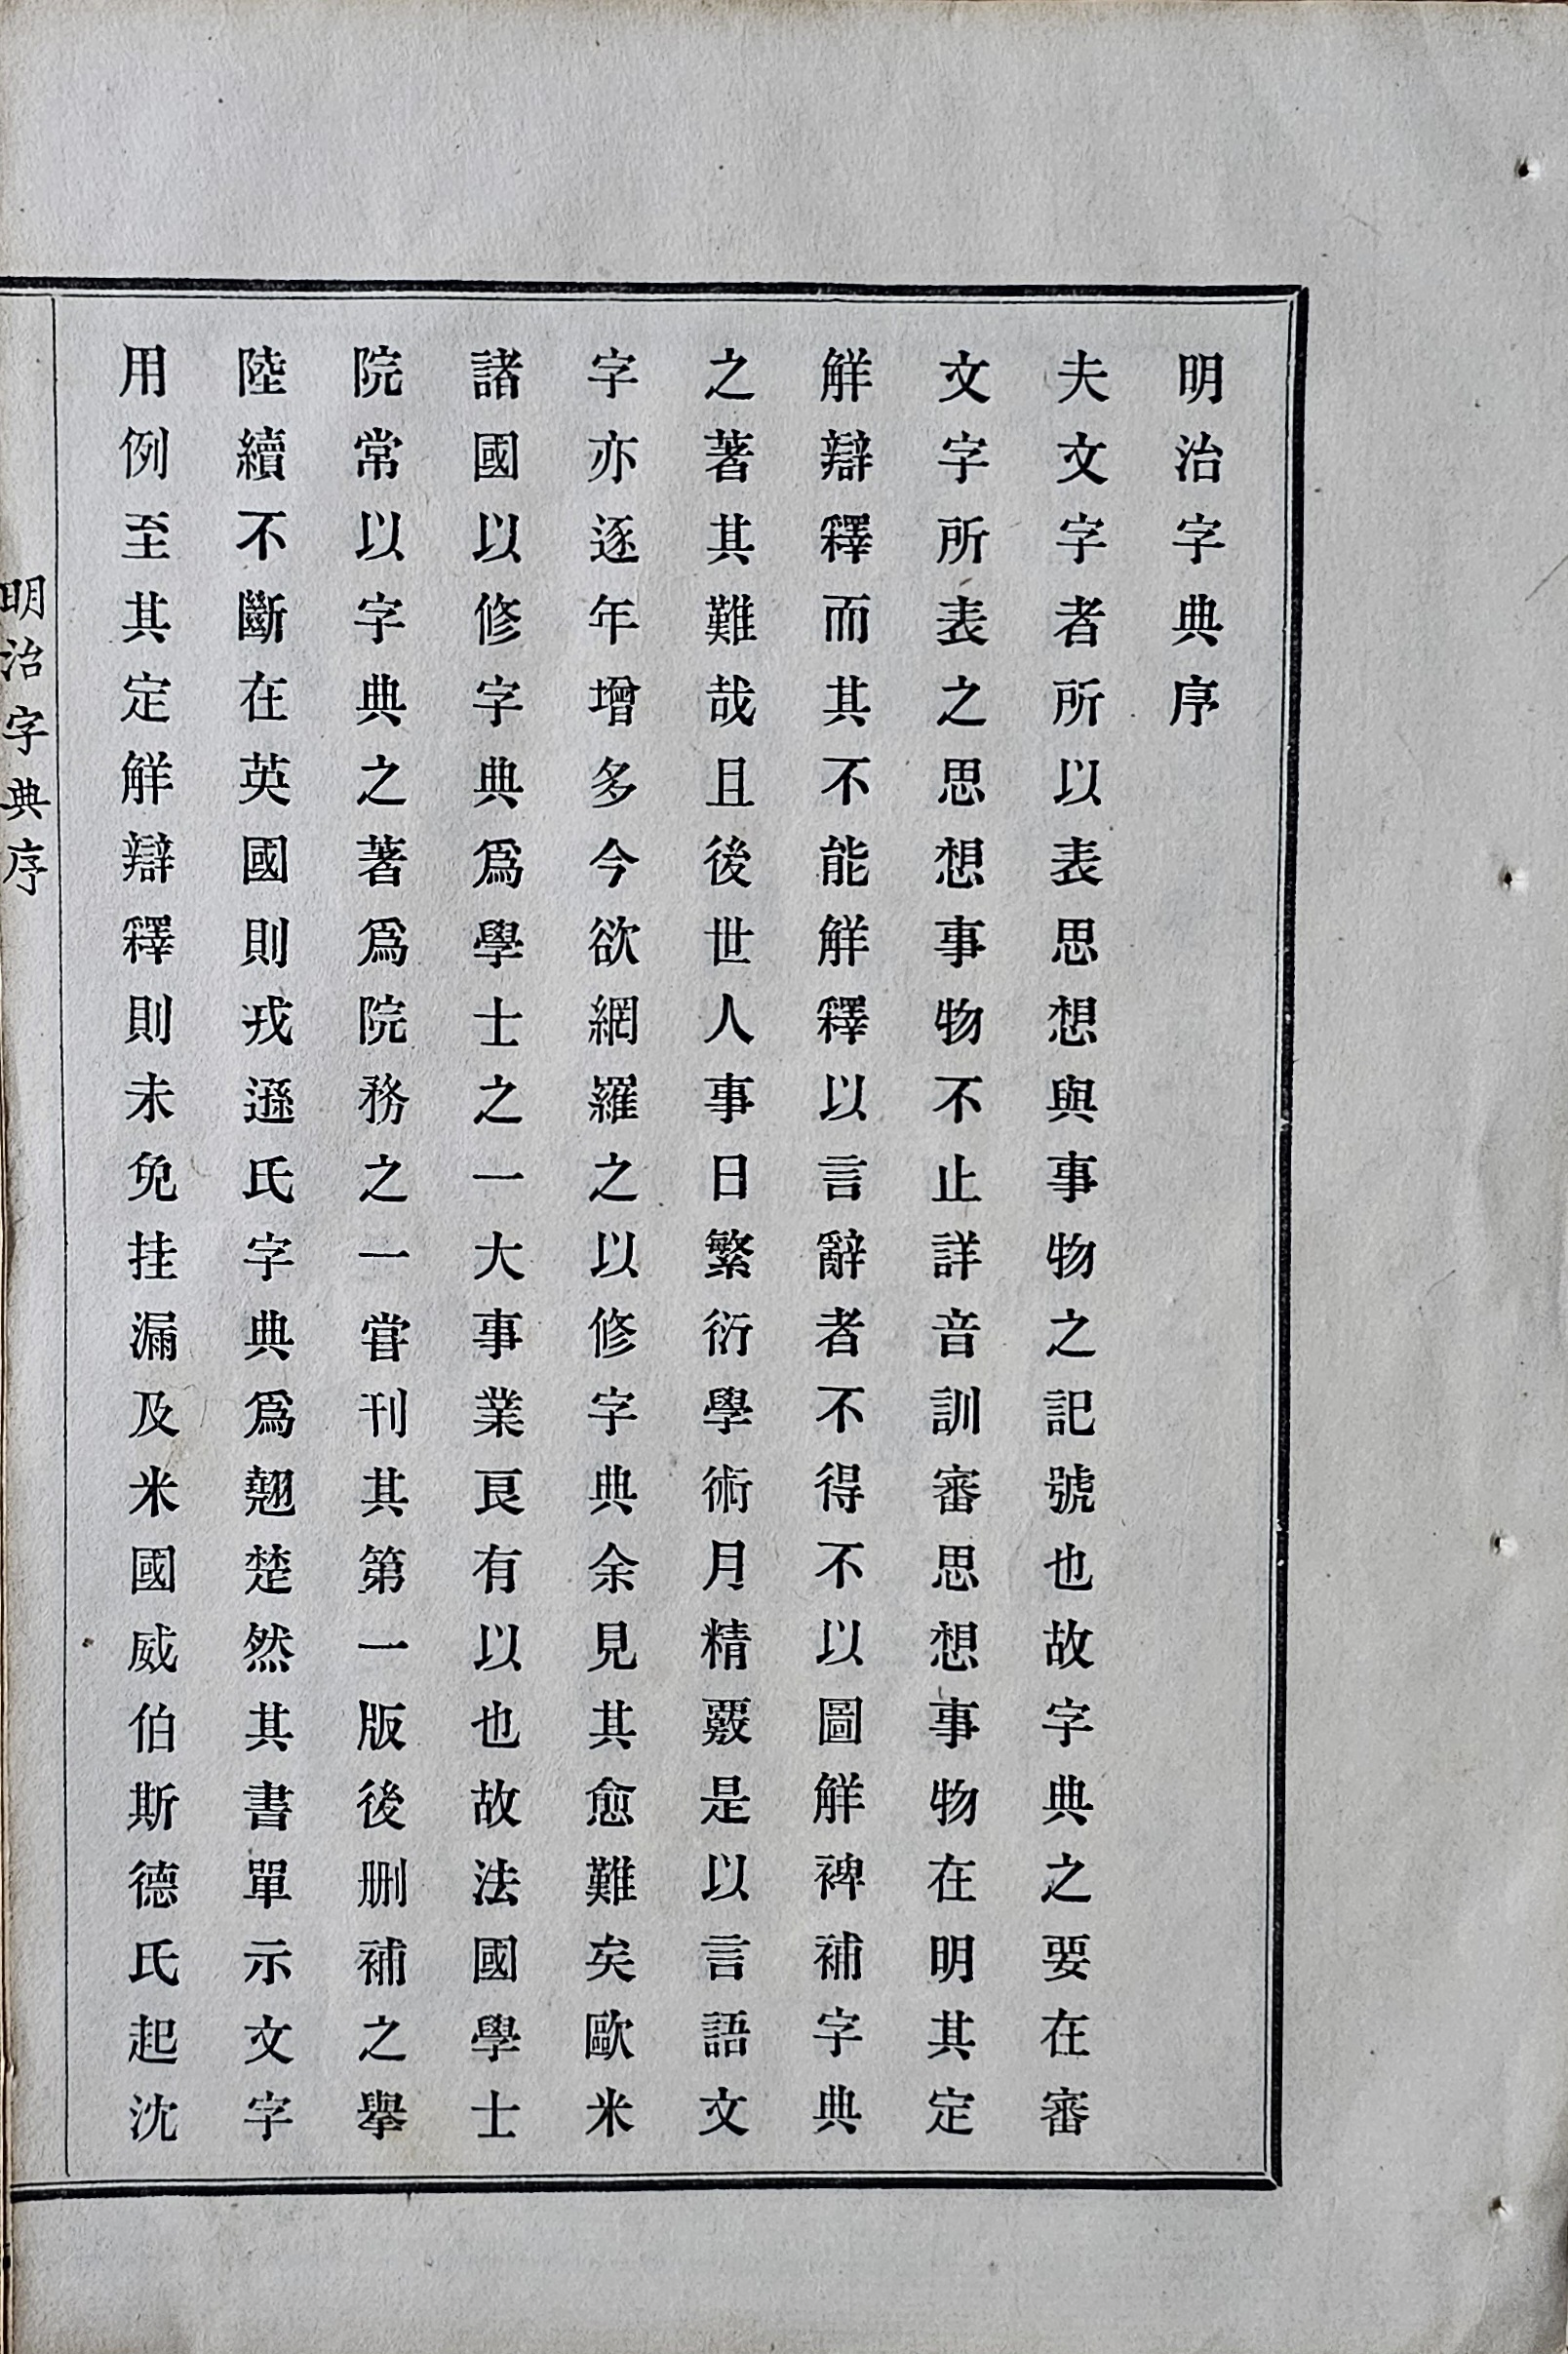 明治字典序
夫文字者所以表思想與事物之記號也故字典之要在審
文字所表之思想事物不止詳音訓審思想事物在明其定
觧辯釋而其不能觧釋以言辭者不得不以圖觧裨補字典
之著其難哉且後世人事日繁衍學術月精覈是以言語文
字亦逐年增多今欲網羅之以修字典余見其愈難矣歐米
諸國以修字典爲學士之一大事業良有以也故法國學士
院常以字典之著爲院務之一嘗刊其第一版後删補之擧
陸續不斷在英國則戎遜氏字典爲翹楚然其書單示文字
用例至其定觧辯釋則未免挂漏及米國威伯斯德氏起沈
明治字典序